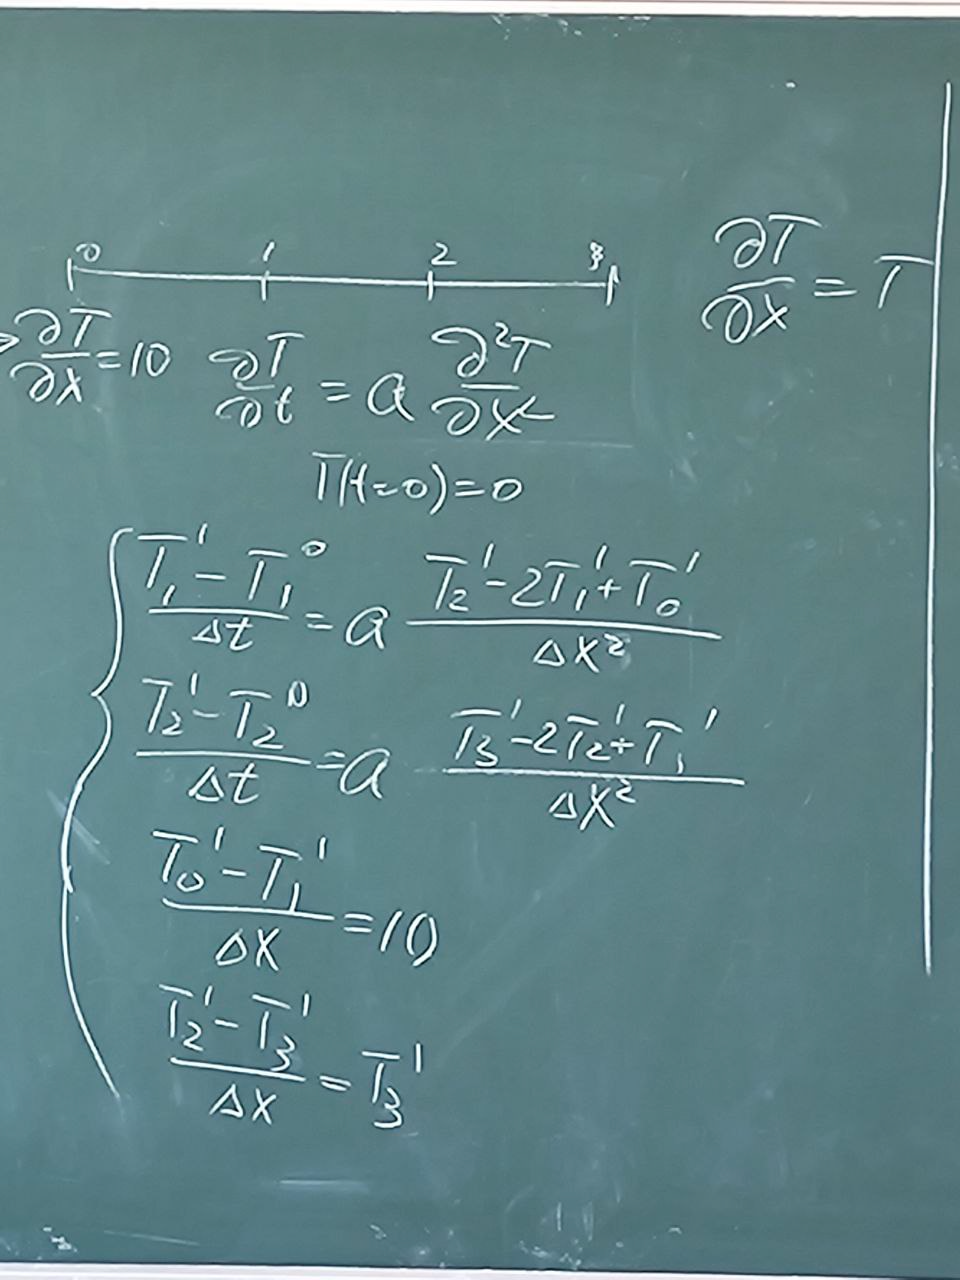 0 1 2 3
∂T/∂x = 10
∂T/∂t = a ∂²T/∂x²
∂T/∂x = T
T(t=0)=0
(T₁¹ - T₁⁰)/Δt = a (T₂¹ - 2T₁¹ + T₀¹)/Δx²
(T₂¹ - T₂⁰)/Δt = a (T₃¹ - 2T₂¹ + T₁¹)/Δx²
(T₀¹ - T₁¹)/Δx = 10
(T₂¹ - T₃¹)/Δx = T₃¹